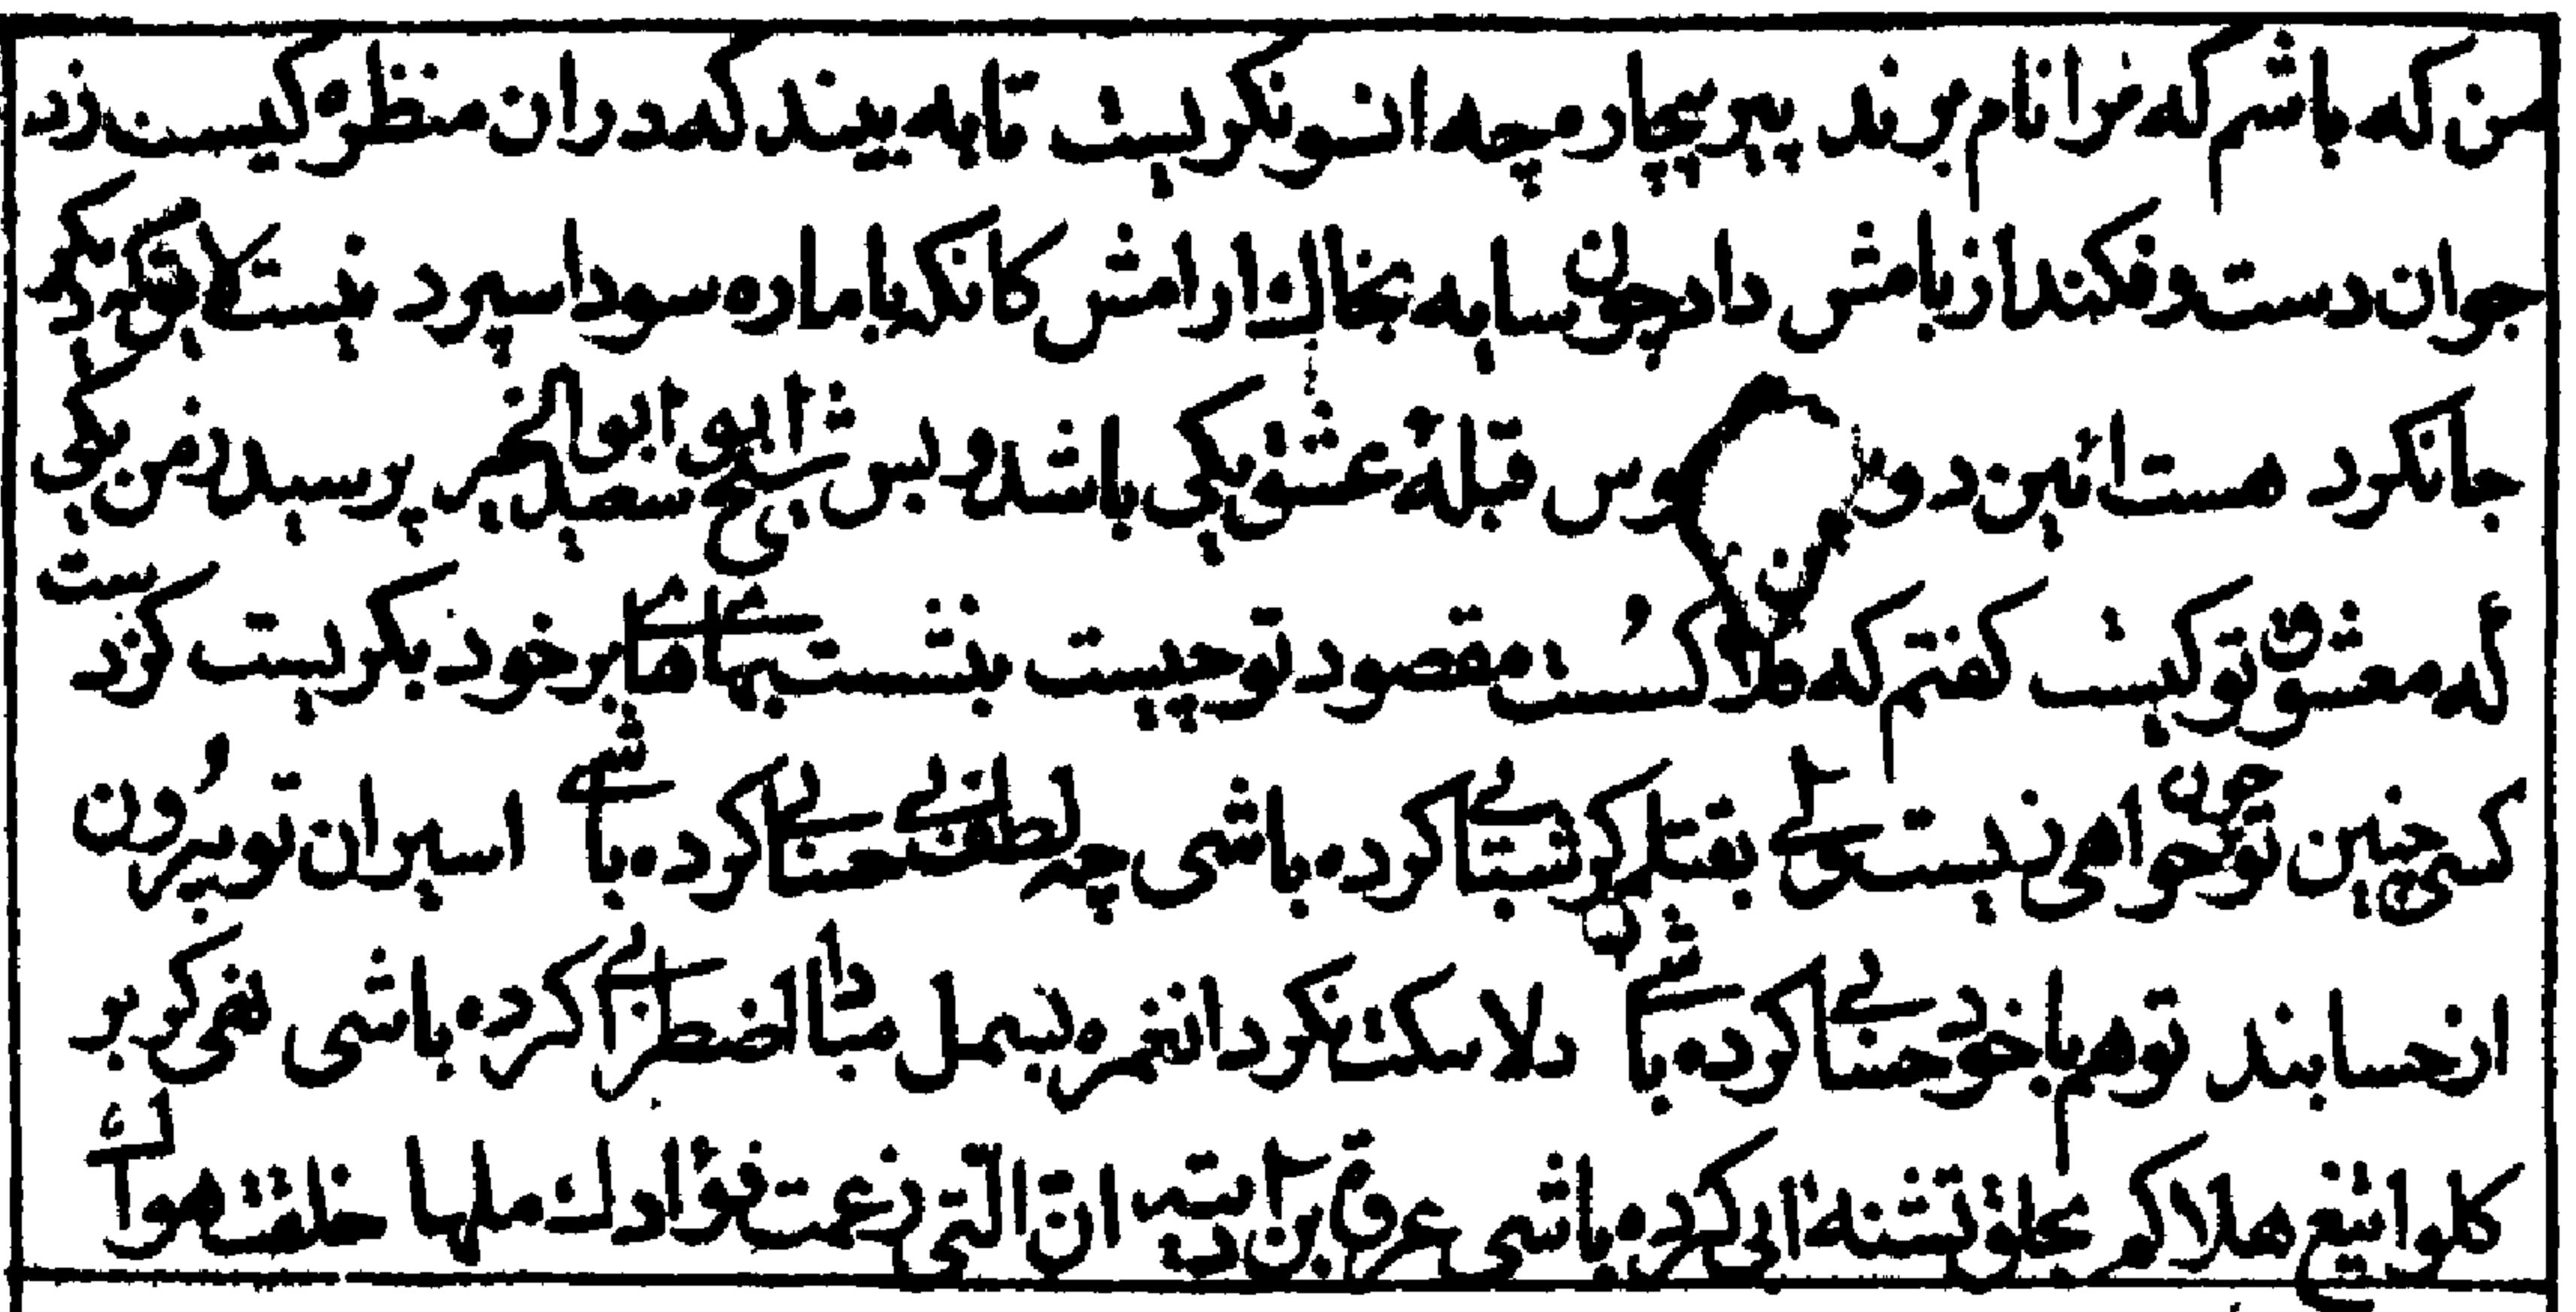 من که باشم که مرا نام برند پیر بیچاره چه انسو نکریست تا به بیند که دران منظره کیست زد
جوان دست و فکند از بامش داد چون سایه بخاک ارامش کانکه با ما ره سودا سپرد نیست لایق که دکر
جا نکرد هست ائین دو وس قبلهٔ عشق یکی باشد و بس شیخ ابو سعید ابوالخیر پرسید ز من یکی
که معشوق تو کیست کفتم که فلان کسست مقصود تو چیست بنشست بهای های بر خود بکریست کز دست
کسی چنین تو چون خواهی نیست بقتلم کر شتابی کرده باشی چه لطف بی حسابی کرده باشی اسیران تو بیرون
از حسابند تو هم با خود حسابی کرده باشی دلا نکرد انغمزه بسمل مبادا اضطرابی کرده باشی نمی کر بر
کلو اتیغ هلاکم بحلق تشنهٔ ابی کرده باشی عروة بن انّ الّتی زعمت فؤادك ملها خلقت هواك